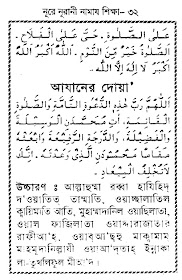 নূরে নূরানী নামায শিক্ষা- ৩২
عَلَى الصَّلٰوةِ. حَىَّ عَلَى الْفَلَاحِ.
الصَّلٰوةُ خَيْرٌ مِّنَ النَّوْمِ. اَللهُ اَكْبَرُ اَللهُ
اَكْبَرُ. لَا اِلٰهَ اِلَّا اللهُ.
আযানের দোয়া
اَللّٰهُمَّ رَبَّ هٰذِهِ الدَّعْوَةِ التَّامَّةِ وَالصَّلٰوةِ
الْقَائِمَةِ. اٰتِ مُحَمَّدَنِ الْوَسِيْلَةَ
وَالْفَضِيْلَةَ. وَالدَّرَجَةَ الرَّفِيْعَةَ. وَابْعَثْهُ
مَقَامًا مَّحْمُوْدَنِ الَّذِىْ وَعَدْتَّهٗ. اِنَّكَ
لَاتُخْلِفُ الْمِيْعَادَ.
উচ্চারণ : আল্লাহুম্মা রব্বা হাযিহিদ্
দা'ওয়াতিত তাম্মাতি, ওয়াচ্ছালাতিল
ক্বায়িমাতি আতি, মুহাম্মাদানিল ওয়াছিলাতা,
ওয়াল ফাজিলাতা ওয়াদ্দারাজাতার
রাফীআ', ওয়াব্আ'ছহু মাক্বামাম
মাহমূদানিল্লাযী ওয়াআ'দতাহু ইন্নাকা
লা-তুখলিফুল মীআ'দ।